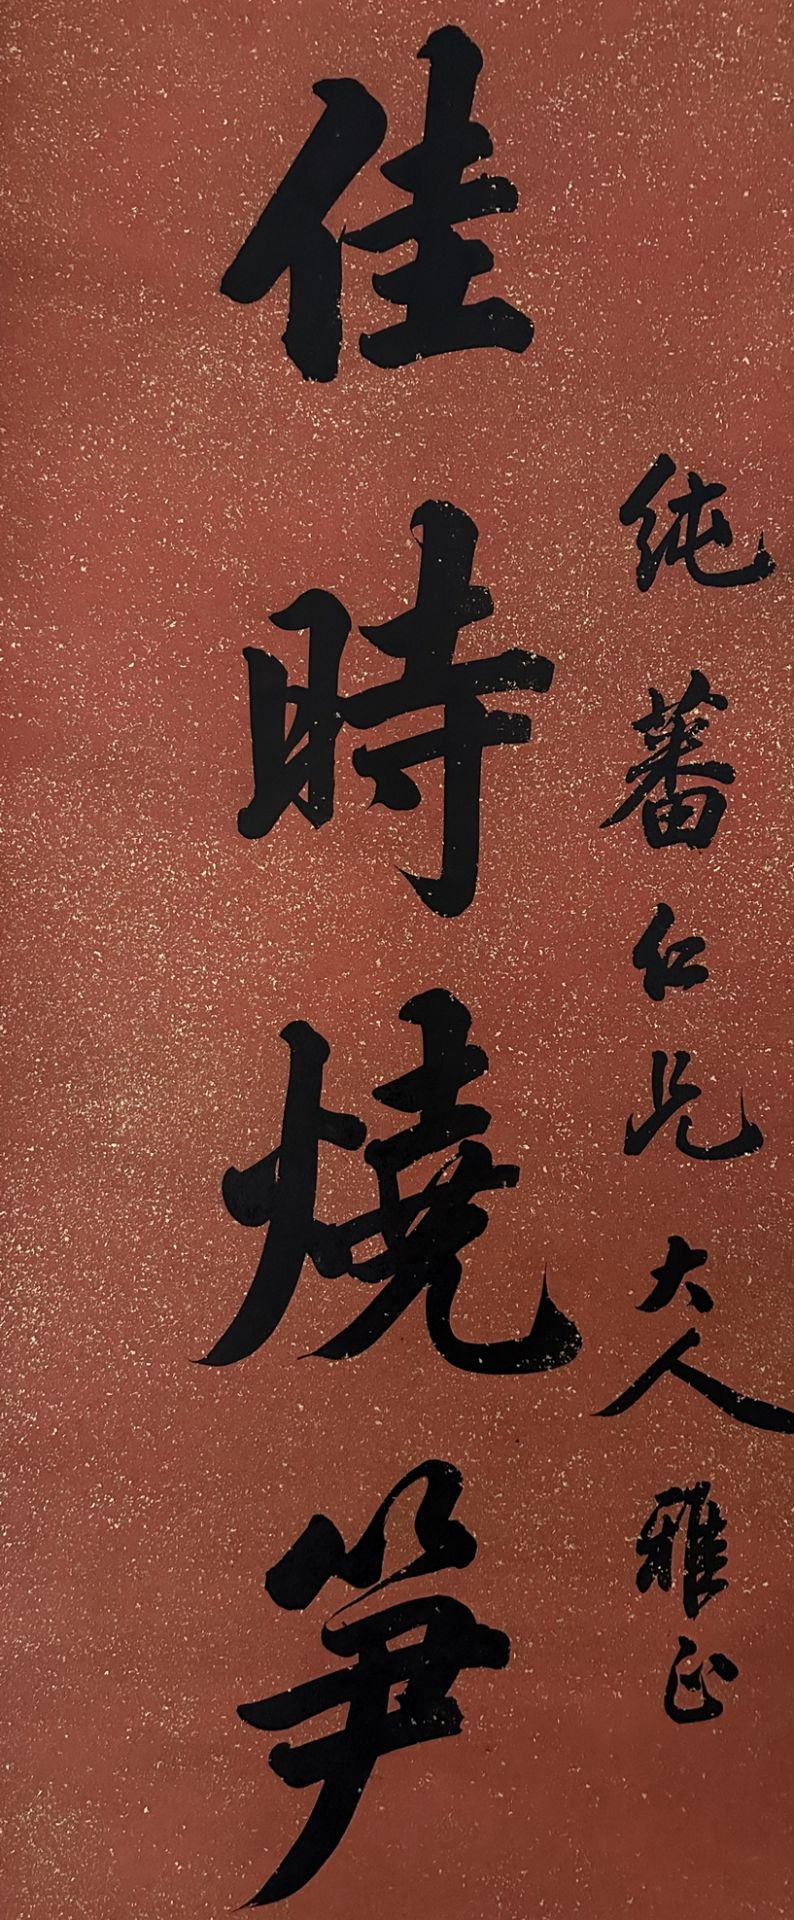 純蕃仁兄大人雅正
佳時燒笋